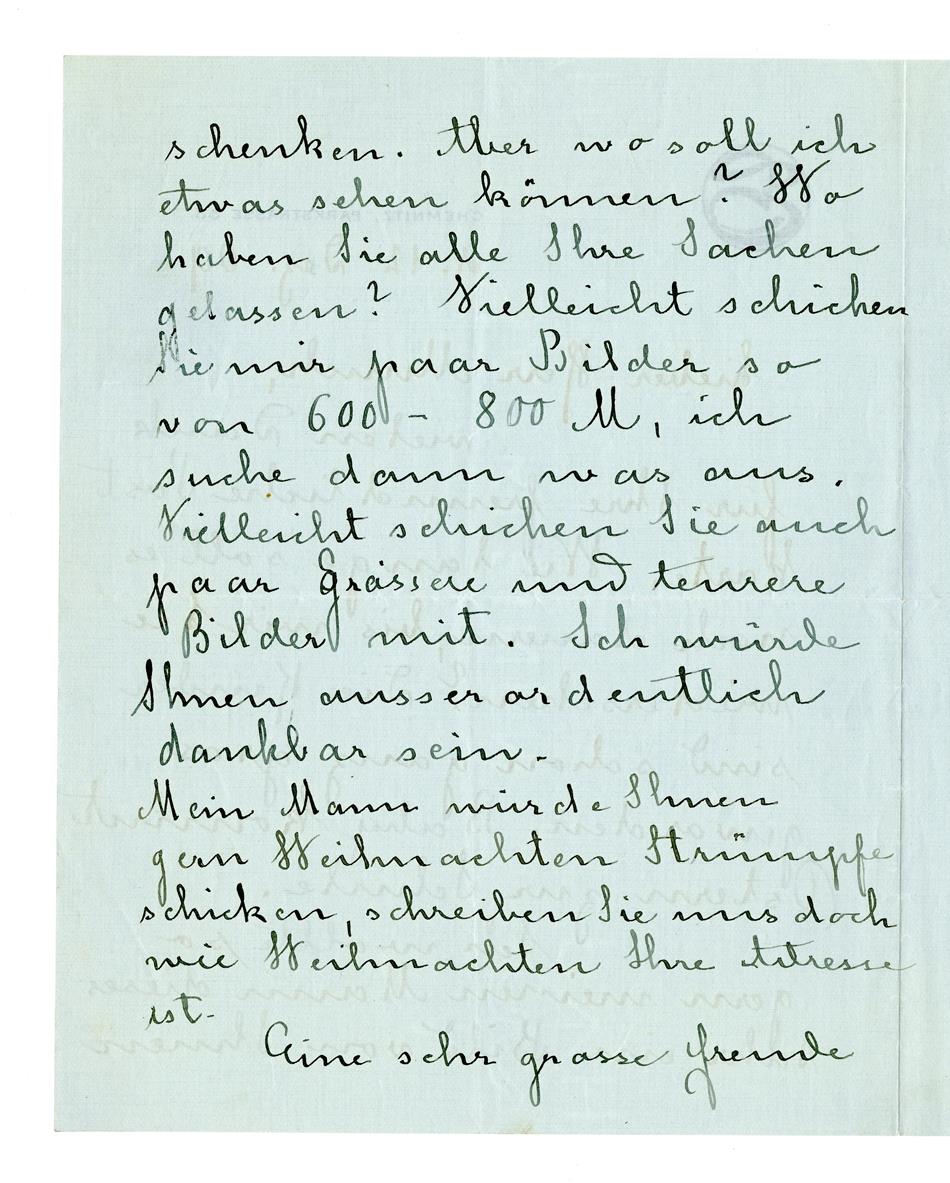 schenken. Aber wo soll ich
etwas sehen können? Wo
haben Sie alle Ihre Sachen
gelassen? Vielleicht schicken
Sie mir paar Bilder so
von 600 - 800 M, ich
suche dann was aus.
Vielleicht schicken Sie auch
paar Grössere und teurere
Bilder mit. Ich würde
Ihnen ausserordentlich
dankbar sein.
Mein Mann würde Ihnen
gern Weihnachten Strümpfe
schicken, schreiben Sie uns doch
wie Weihnachten Ihre Adresse
ist.
Eine sehr grosse Freude